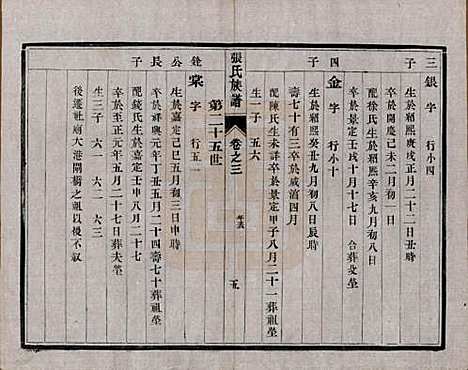 三子
銀字 行小四
生於紹熙庚戌正月二十二日丑時
卒於開慶己未二月初一日
配徐氏生於紹熙辛亥九月初八日
卒於景定壬戌十月十六日 合葬父塋
四子
金字 行小十
生於紹熙癸丑九月初八日辰時
壽七十有三卒於咸淳四月
配陳氏生未詳卒於景定甲子八月二十一葬祖塋
生一子 五六
張氏族譜
卷之三
五
第二十五世
銓公長子
棠字 行五一
生於嘉定己巳五月初三日申時
卒於祥興元年丁丑五月二十四壽七十葬祖塋
配錢氏生於嘉定壬申八月二十七
卒於至正元年五月二十七日葬夫塋
生三子 六一 六二 六三
後遷社廟大港開橋之 後不叙